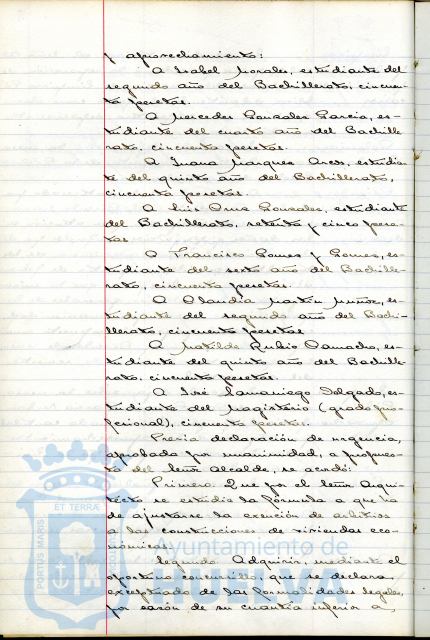 y aprovechamiento:
A Isabel Morales, estudiante del
segundo año del Bachillerato, cincuen-
ta pesetas.
A Mercedes Gonzales Garcia, es-
tudiante del cuarto año del Bachille-
rato, cincuenta pesetas.
A Juana Marques Arcos, estudian-
te del quinto año del Bachillerato,
cincuenta pesetas.
A Luis Gonzales, estudiante
del Bachillerato, setenta y cinco pese-
tas
A Francisco Gomes y Gomes, es-
tudiante del sexto año del Bachille-
rato, cincuenta pesetas.
A Claudia Martin Muñoz, es-
tudiante del segundo año del Bachi-
llerato, cincuenta pesetas
A Matilde Rubio Camacho, es-
tudiante del quinto año del Bachille-
rato, cincuenta pesetas.
A José Samaniego Delgado, es-
tudiante del Magisterio (grado pro-
fesional), cincuenta pesetas.
Previa declaración de urgencia,
aprobada por unanimidad, a propues-
ta del señor Alcalde, se acordó:
Primero. Que por el señor Arqui-
tecto se estudie la fórmula a que ha
de ajustarse la exención de arbitrios
a las construcciones de viviendas eco-
nómicas.
Segundo. Adquirir, mediante el
oportuno concursillo, que se declara
exceptuado de las formalidades legales,
por razón de su cuantía inferior a
PORTUS MARIS ET TERRAE
Ayuntamiento de
HUELVA